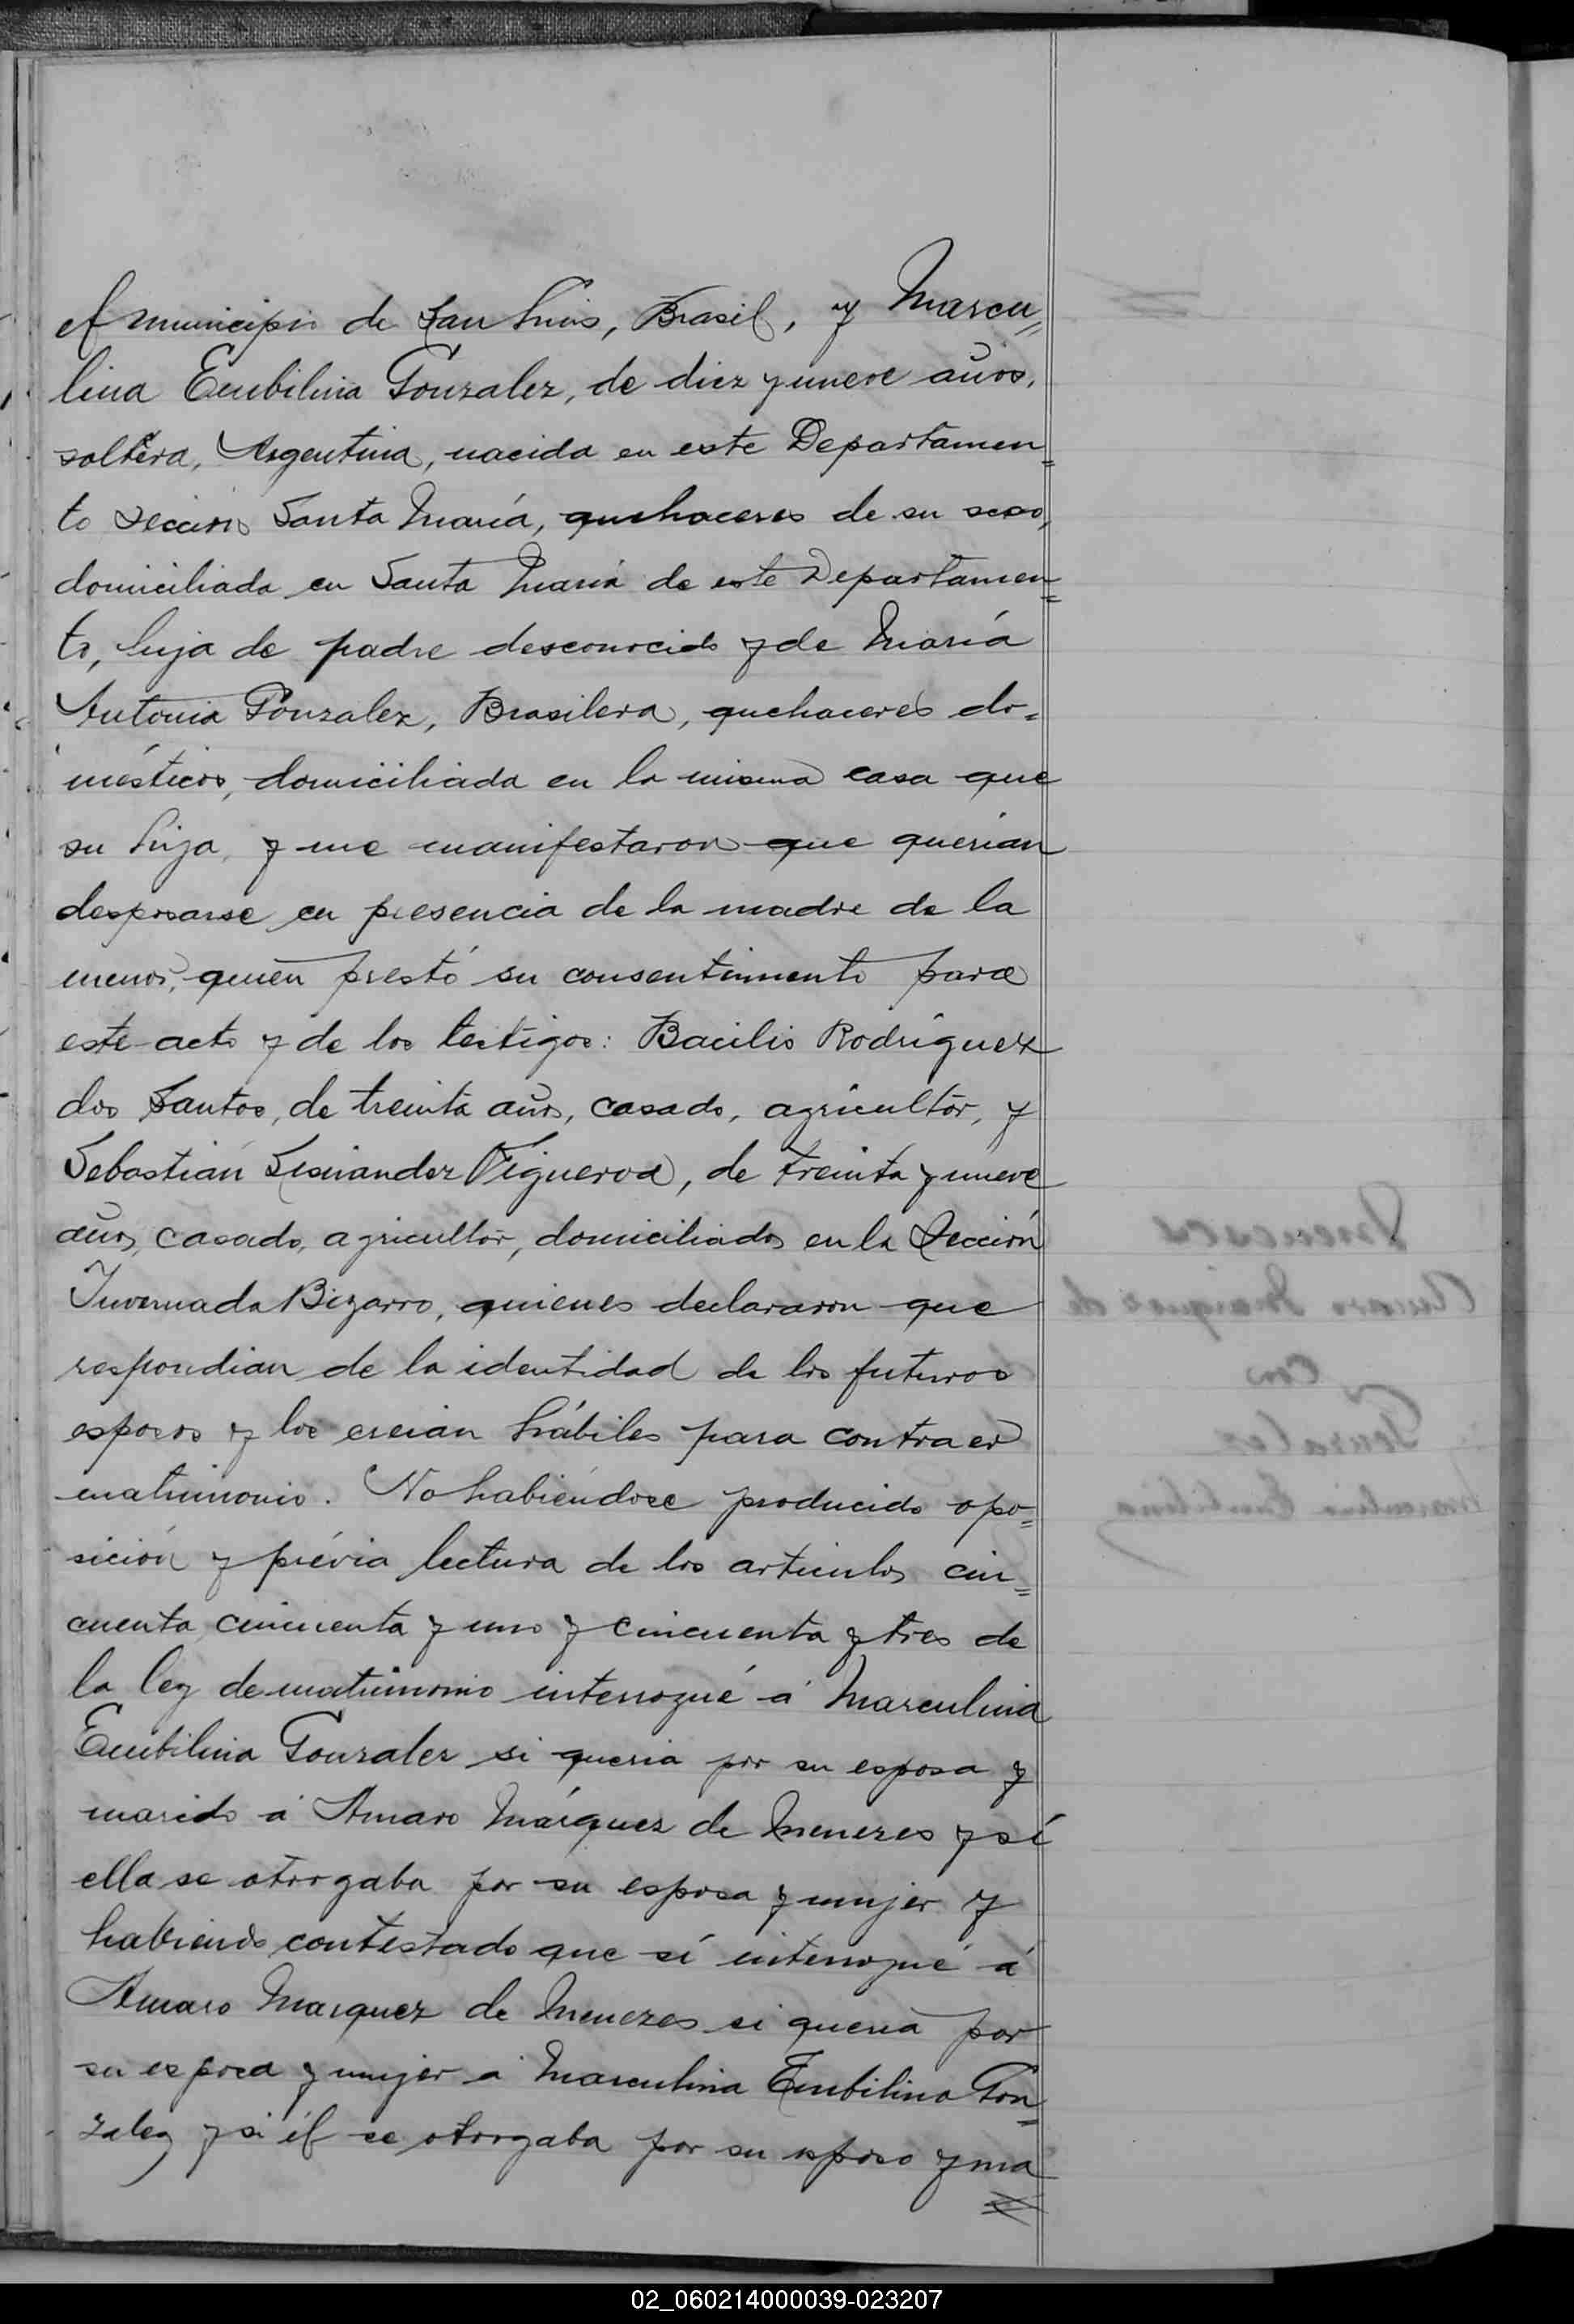 el municipio de San Luis, Brasil, y Marcu=
lina Embilina Gonzalez, de diez y nueve años,
soltera, Argentina, nacida en este Departamen=
to sección Santa María, quehaceres de su sexo,
domiciliada en Santa María de este Departamen=
to, hija de padre desconocido y de María
Antonia Gonzalez, Brasilera, quehaceres do=
mésticos, domiciliada en la misma casa que
su hija, y me manifestaron que querian
desposarse en presencia de la madre de la
menor, quien prestó su consentimiento para
este acto y de los testigos: Bacilio Rodríguez
dos Santos, de treinta años, casado, agricultor, y
Sebastián Lisnandez Figueroa, de treinta y nueve
años, casado, agricultor, domiciliados en la Sección
Invernada Bizarro, quienes declararon que
respondian de la identidad de los futuros
esposos y los creian hábiles para contraer
matrimonio. No habiéndose producido opo=
sición y prévia lectura de los articulos cin=
cuenta, cincuenta y uno y cincuenta y tres de
la ley de matrimonio interrogué á Marculina
Embilina Gonzalez si queria por su esposo y
marido á Amaro Márquez de Menezes y sí
ella se otorgaba por su esposa y mujer y
habiendo contestado que sí interrogué á
Amaro Marquez de Menezes si queria por
su esposa y mujer á Marculina Embilina Gon=
zalez y si él se otorgaba por su esposo y ma
Menezes
Amaro Marquez de
con
Gonzalez
Marculina Embilina
02_060214000039-023207